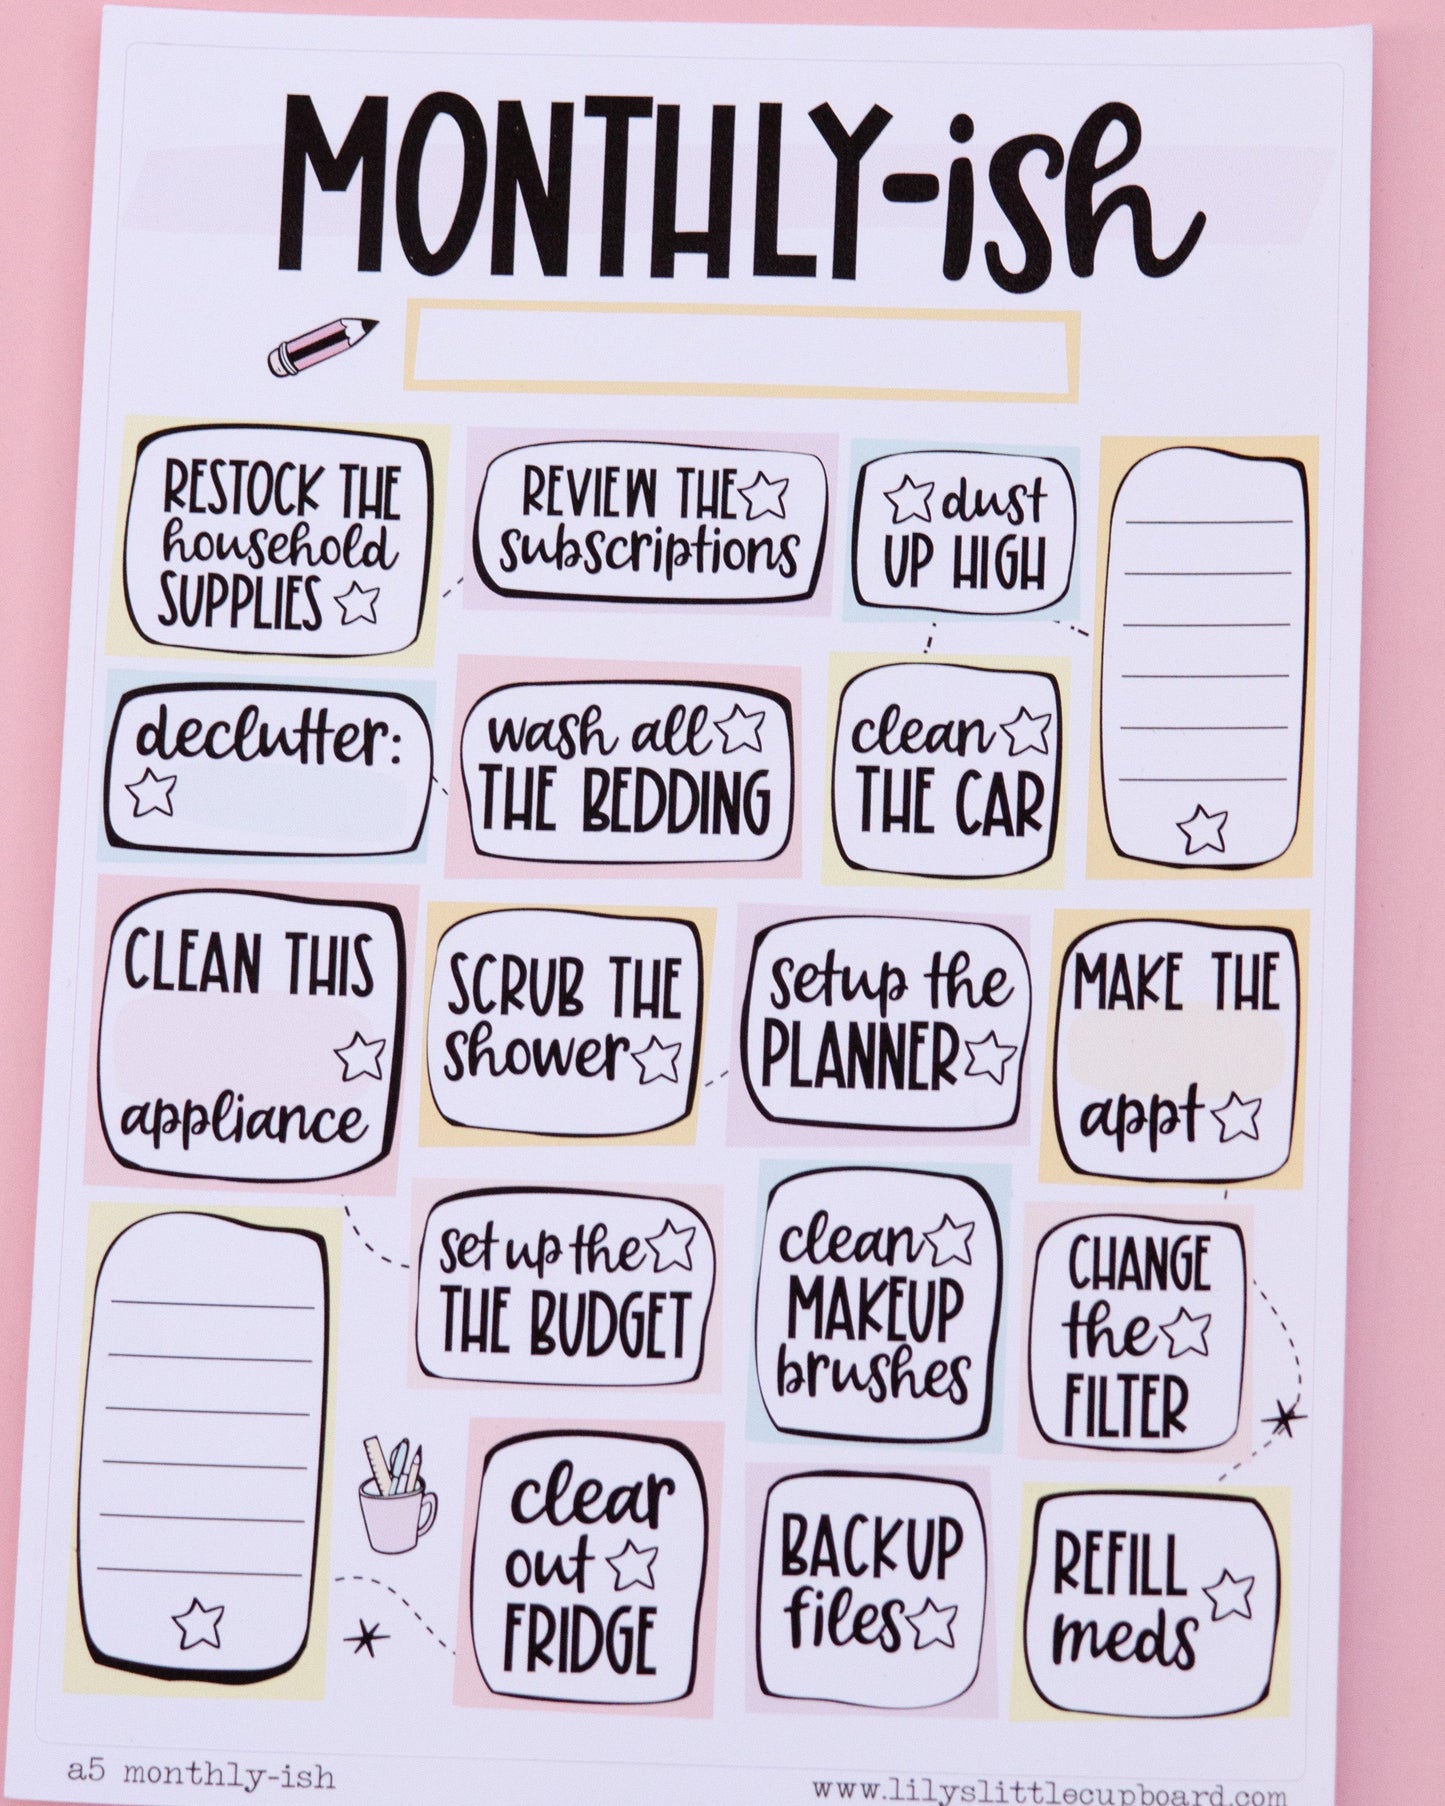 MONTHLY-ish
RESTOCK THE
household
SUPPLIES
REVIEW THE
subscriptions
dust
UP HIGH
declutter:
wash all
THE BEDDING
clean
THE CAR
CLEAN THIS
appliance
SCRUB THE
shower
setup the
PLANNER
MAKE THE
appt
set up the
THE BUDGET
clean
MAKEUP
brushes
CHANGE
the
FILTER
clear
out
FRIDGE
BACKUP
files
REFILL
meds
a5 monthly-ish
www.lilyslittlecupboard.com